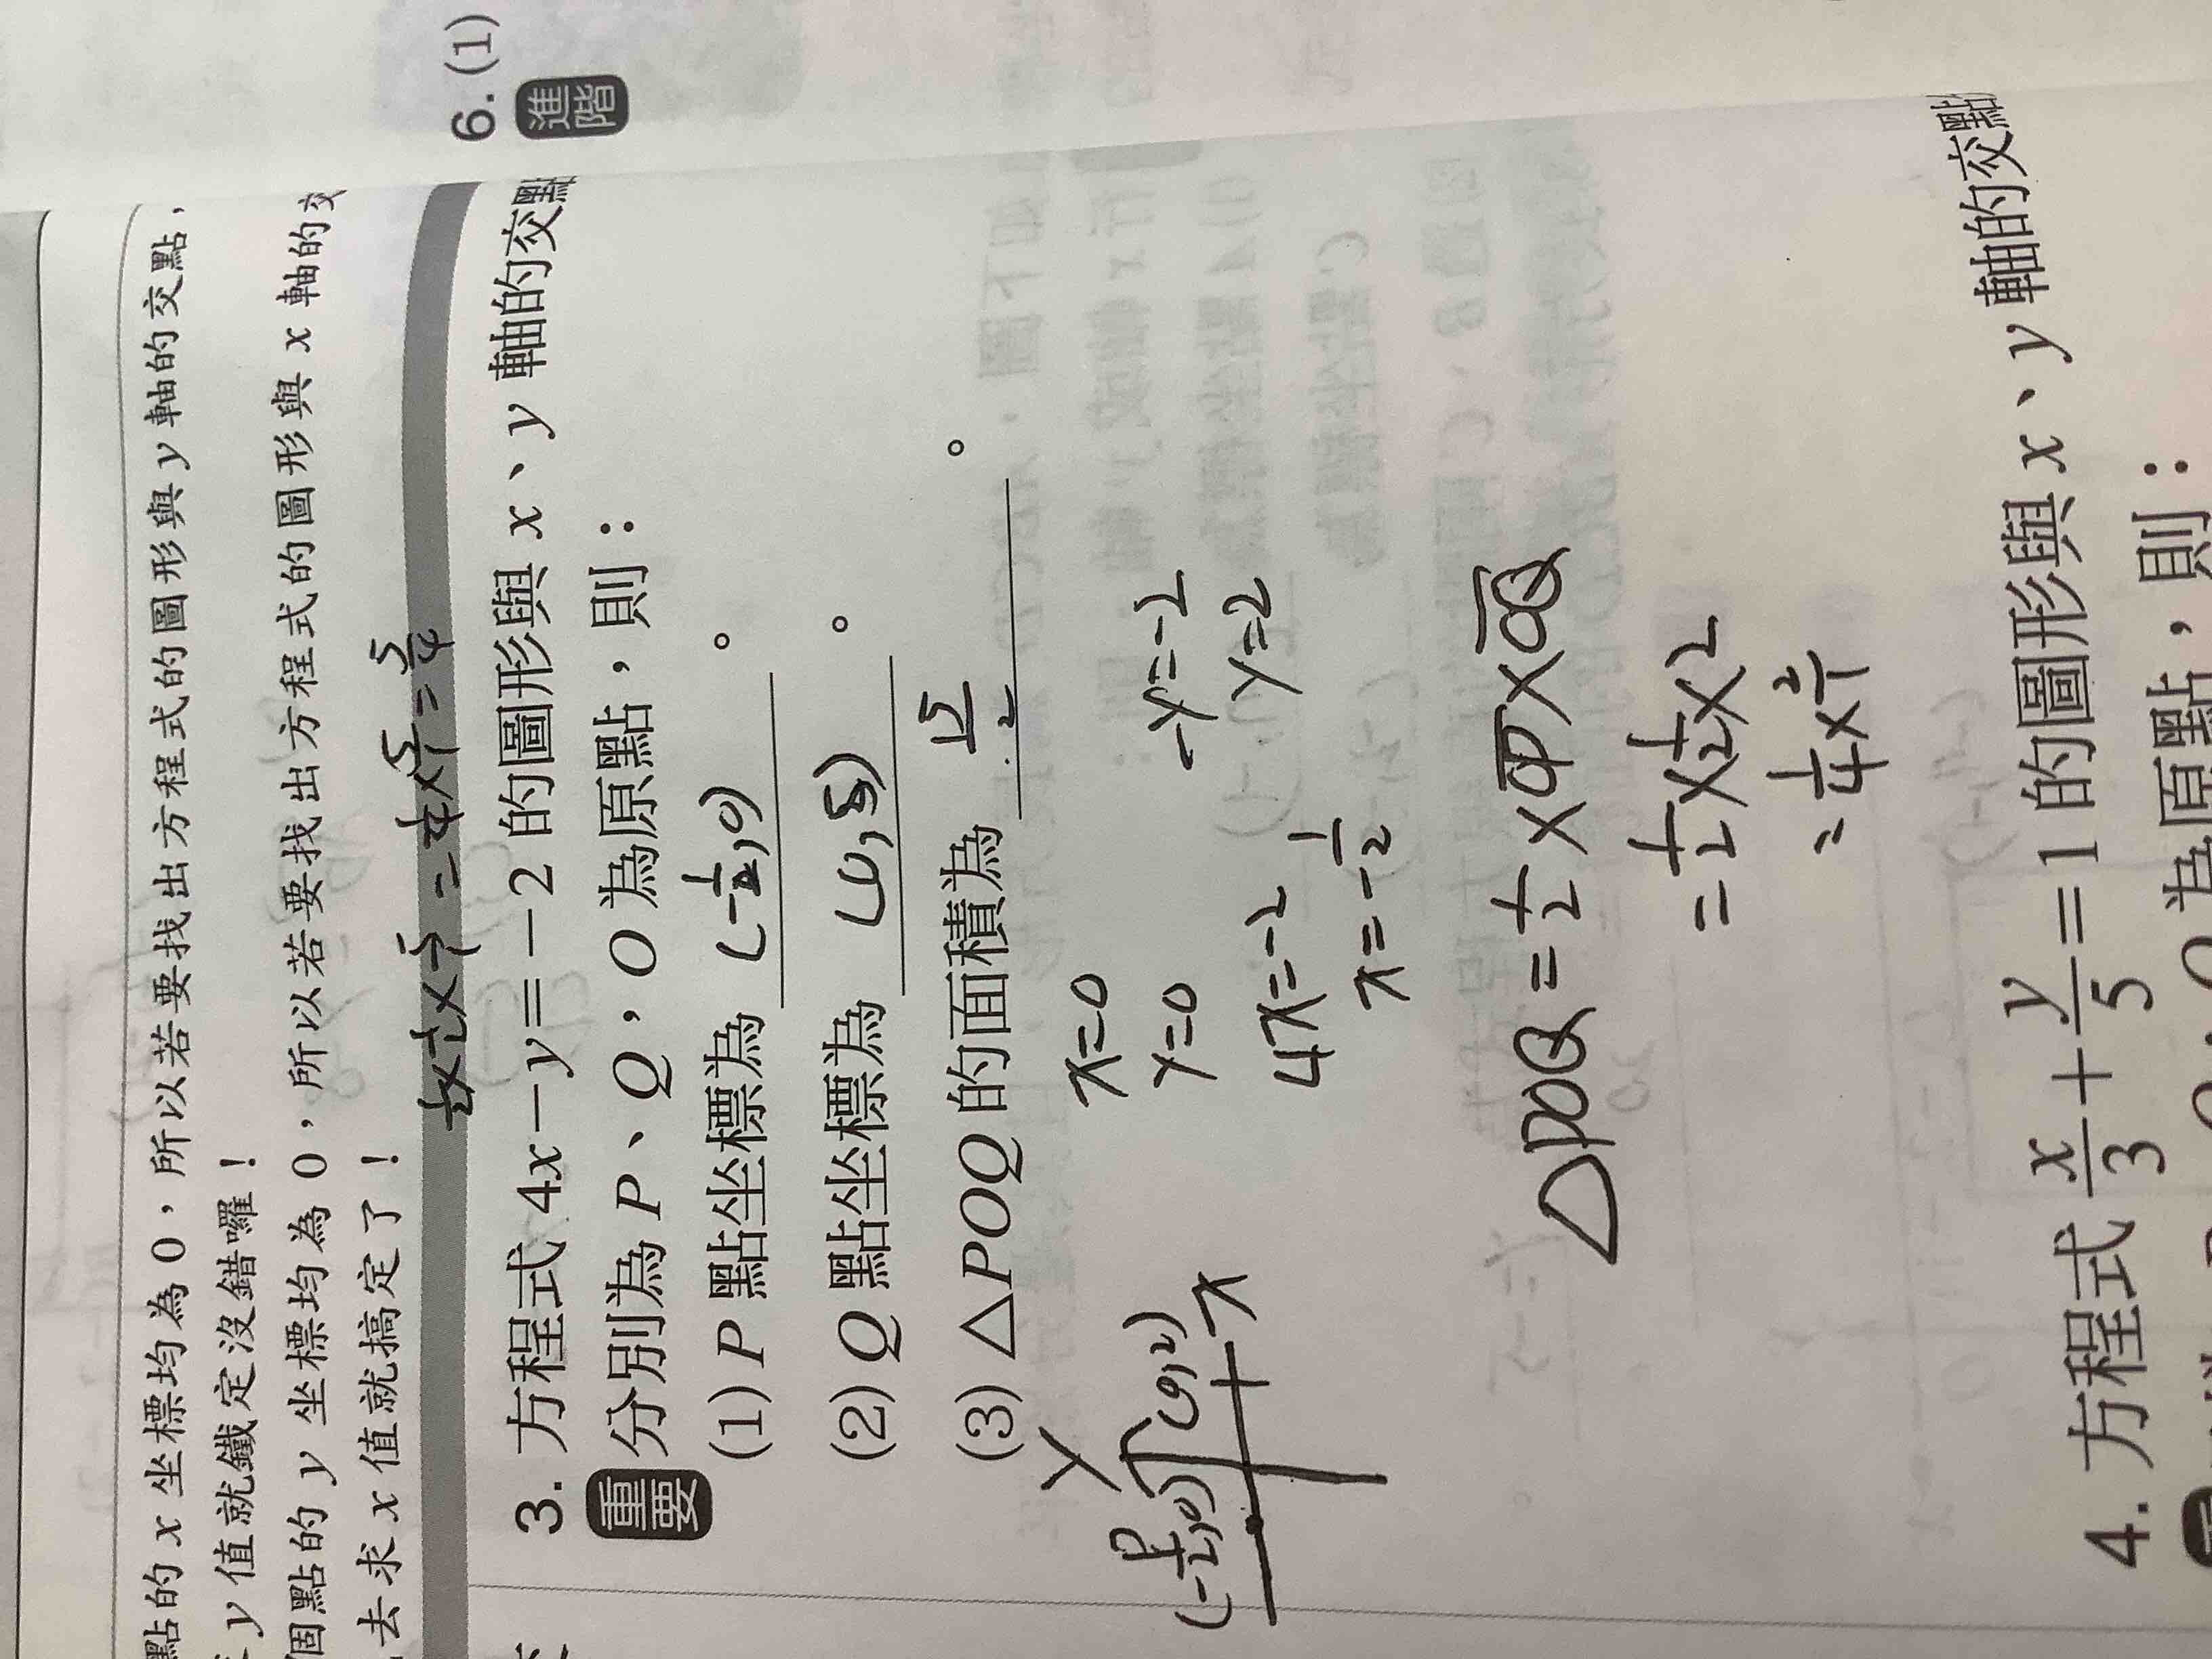 點的 x 坐標均為 0，所以若要找出方程式的圖形與 y 軸的交點，
y 值就鐵定沒錯囉！
個點的 y 坐標均為 0，所以若要找出方程式的圖形與 x 軸的交
去求 x 值就搞定了！
3. 方程式 4x－y＝－2 的圖形與 x、y 軸的交點
重要 分別為 P、Q，O 為原點，則：
(1) P 點坐標為 (-1/2,0) 。
(2) Q 點坐標為 。
(3) △POQ 的面積為 。
x=0
y=0
-y=-2
y=2
4x=-2
x=-1/2
y
P
(-1/2,0) (0,2)
x
△POQ=1/2×OP×OQ
=1/2×1/2×2
=1/4×2/1
4. 方程式 x/3＋y/5＝1 的圖形與 x、y 軸的交點
O 為原點，則：
6. (1)
進階